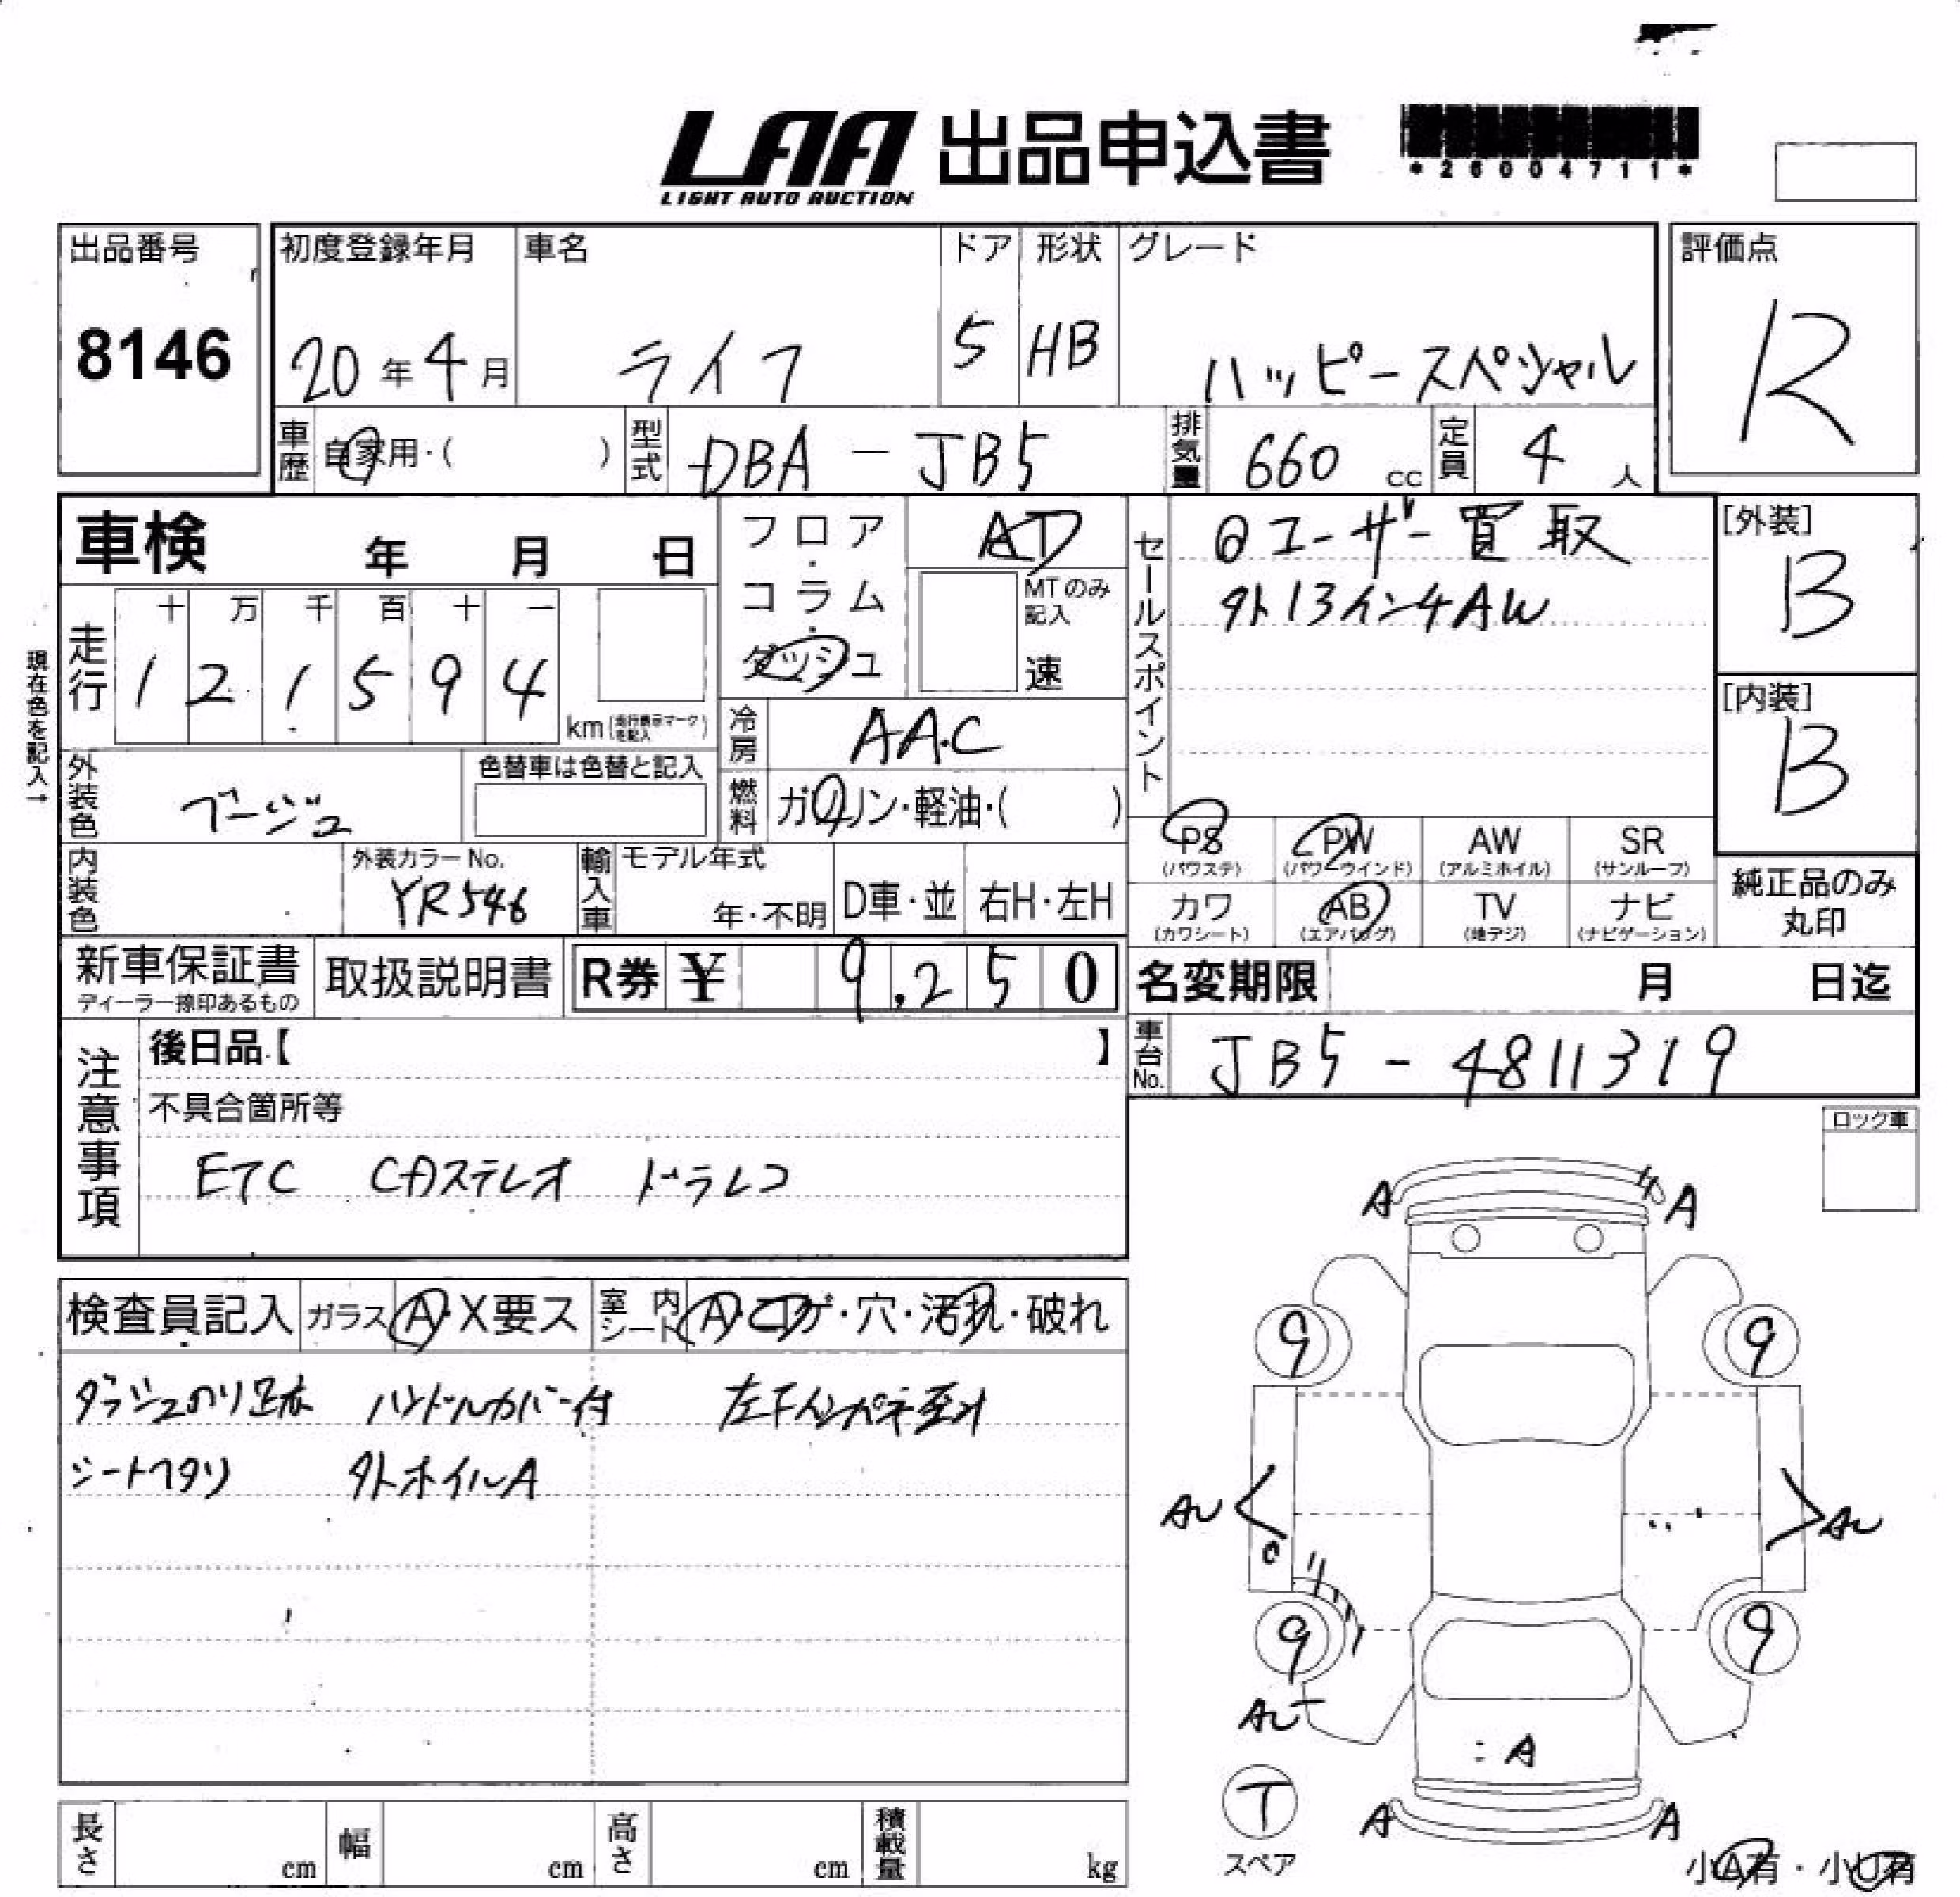 LAA 出品申込書
LIGHT AUTO AUCTION
*26004711*
出品番号 初度登録年月 車名 ドア 形状 グレード 評価点
8146 20年4月 ライフ 5 HB ハッピースペシャル R
車歴 自家用・( ) 型式 DBA-JB5 排気量 660 cc 定員 4 人
車検 年 月 日
フロア・コラム・ダッシュ
AT
MTのみ記入
速
セールスポイント
ユーザー買取
外13インチAW
[外装]
B
[内装]
B
現在色を記入→
走行 十 万 千 百 十 一
1 2 1 5 9 4 km(走行表示マークを記入)
冷房 AAC
外装色 ブージュ 色替車は色替と記入
燃料 ガソリン・軽油・( )
PS (パワステ) PW (パワーウインド) AW (アルミホイル) SR (サンルーフ)
カワ (カワシート) AB (エアバッグ) TV (地デジ) ナビ (ナビゲーション)
純正品のみ
丸印
内装色 外装カラーNo. YR546 輸入車 モデル年式 年・不明 D車・並 右H・左H
新車保証書 ディーラー捺印あるもの 取扱説明書 R券 ¥ 9,250
名変期限 月 日迄
車台No. JB5-4811319
注意事項
後日品【 】
不具合箇所等
ETC CDステレオ ドラレコ
ロック車
検査員記入 ガラス A・X要ス 室内シート A・コゲ・穴・汚れ・破れ
ダッシュのり跡 ハンドルカバー付 左下インパネ歪み
シートヘタリ 外ホイルA
A A
9 9
AU AU
9 9
AU
A
T
スペア
A A
小A有・小U有
長さ cm 幅 cm 高さ cm 積載量 kg